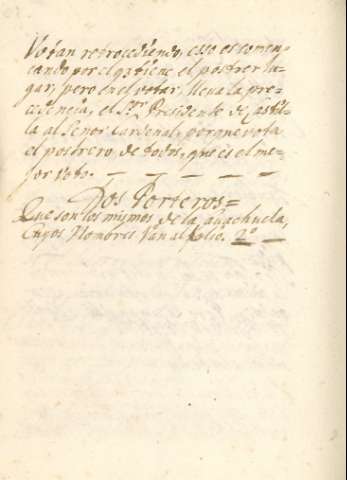 Votan retrocediendo, esso es comen-
cando por el q̃ tiene el postrer lu-
gar, pero en el votar, lleua la pre-
cedencia, el S.or Presidente de Casti-
lla al Señor Cardenal, porque vota
el postrero de todos, que es el me-
jor voto.
Dos Porteros=
Que son los mismos de la
cuyos Nombres van al folio. 2º